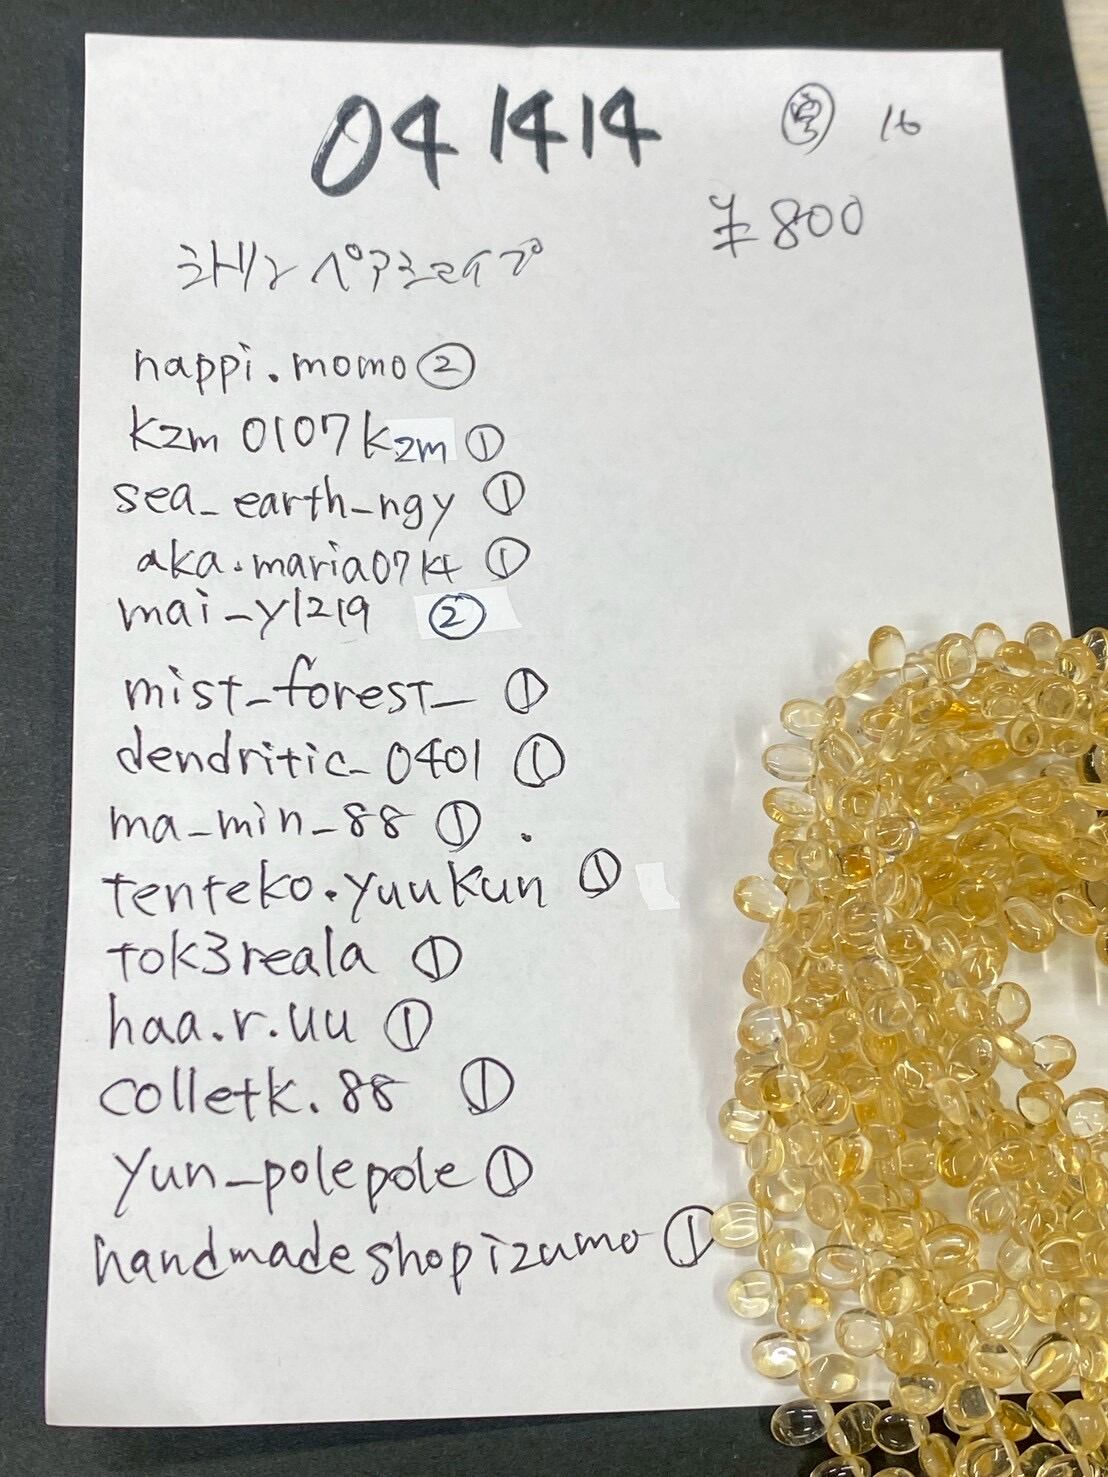 041414
16
¥800
シトリン ペアシェイプ
happi.momo ②
kzm 0107kzm ①
sea_earth_ngy ①
aka.maria07kt ①
mai_y1219 ②
mist_forest_ ①
dendritic_0401 ①
ma_min_88 ①.
tenteko.yuukun ①
tok3reala ①
haa.r.uu ①
colletk.88 ①
yun_polepole ①
handmadeshopizumo ①